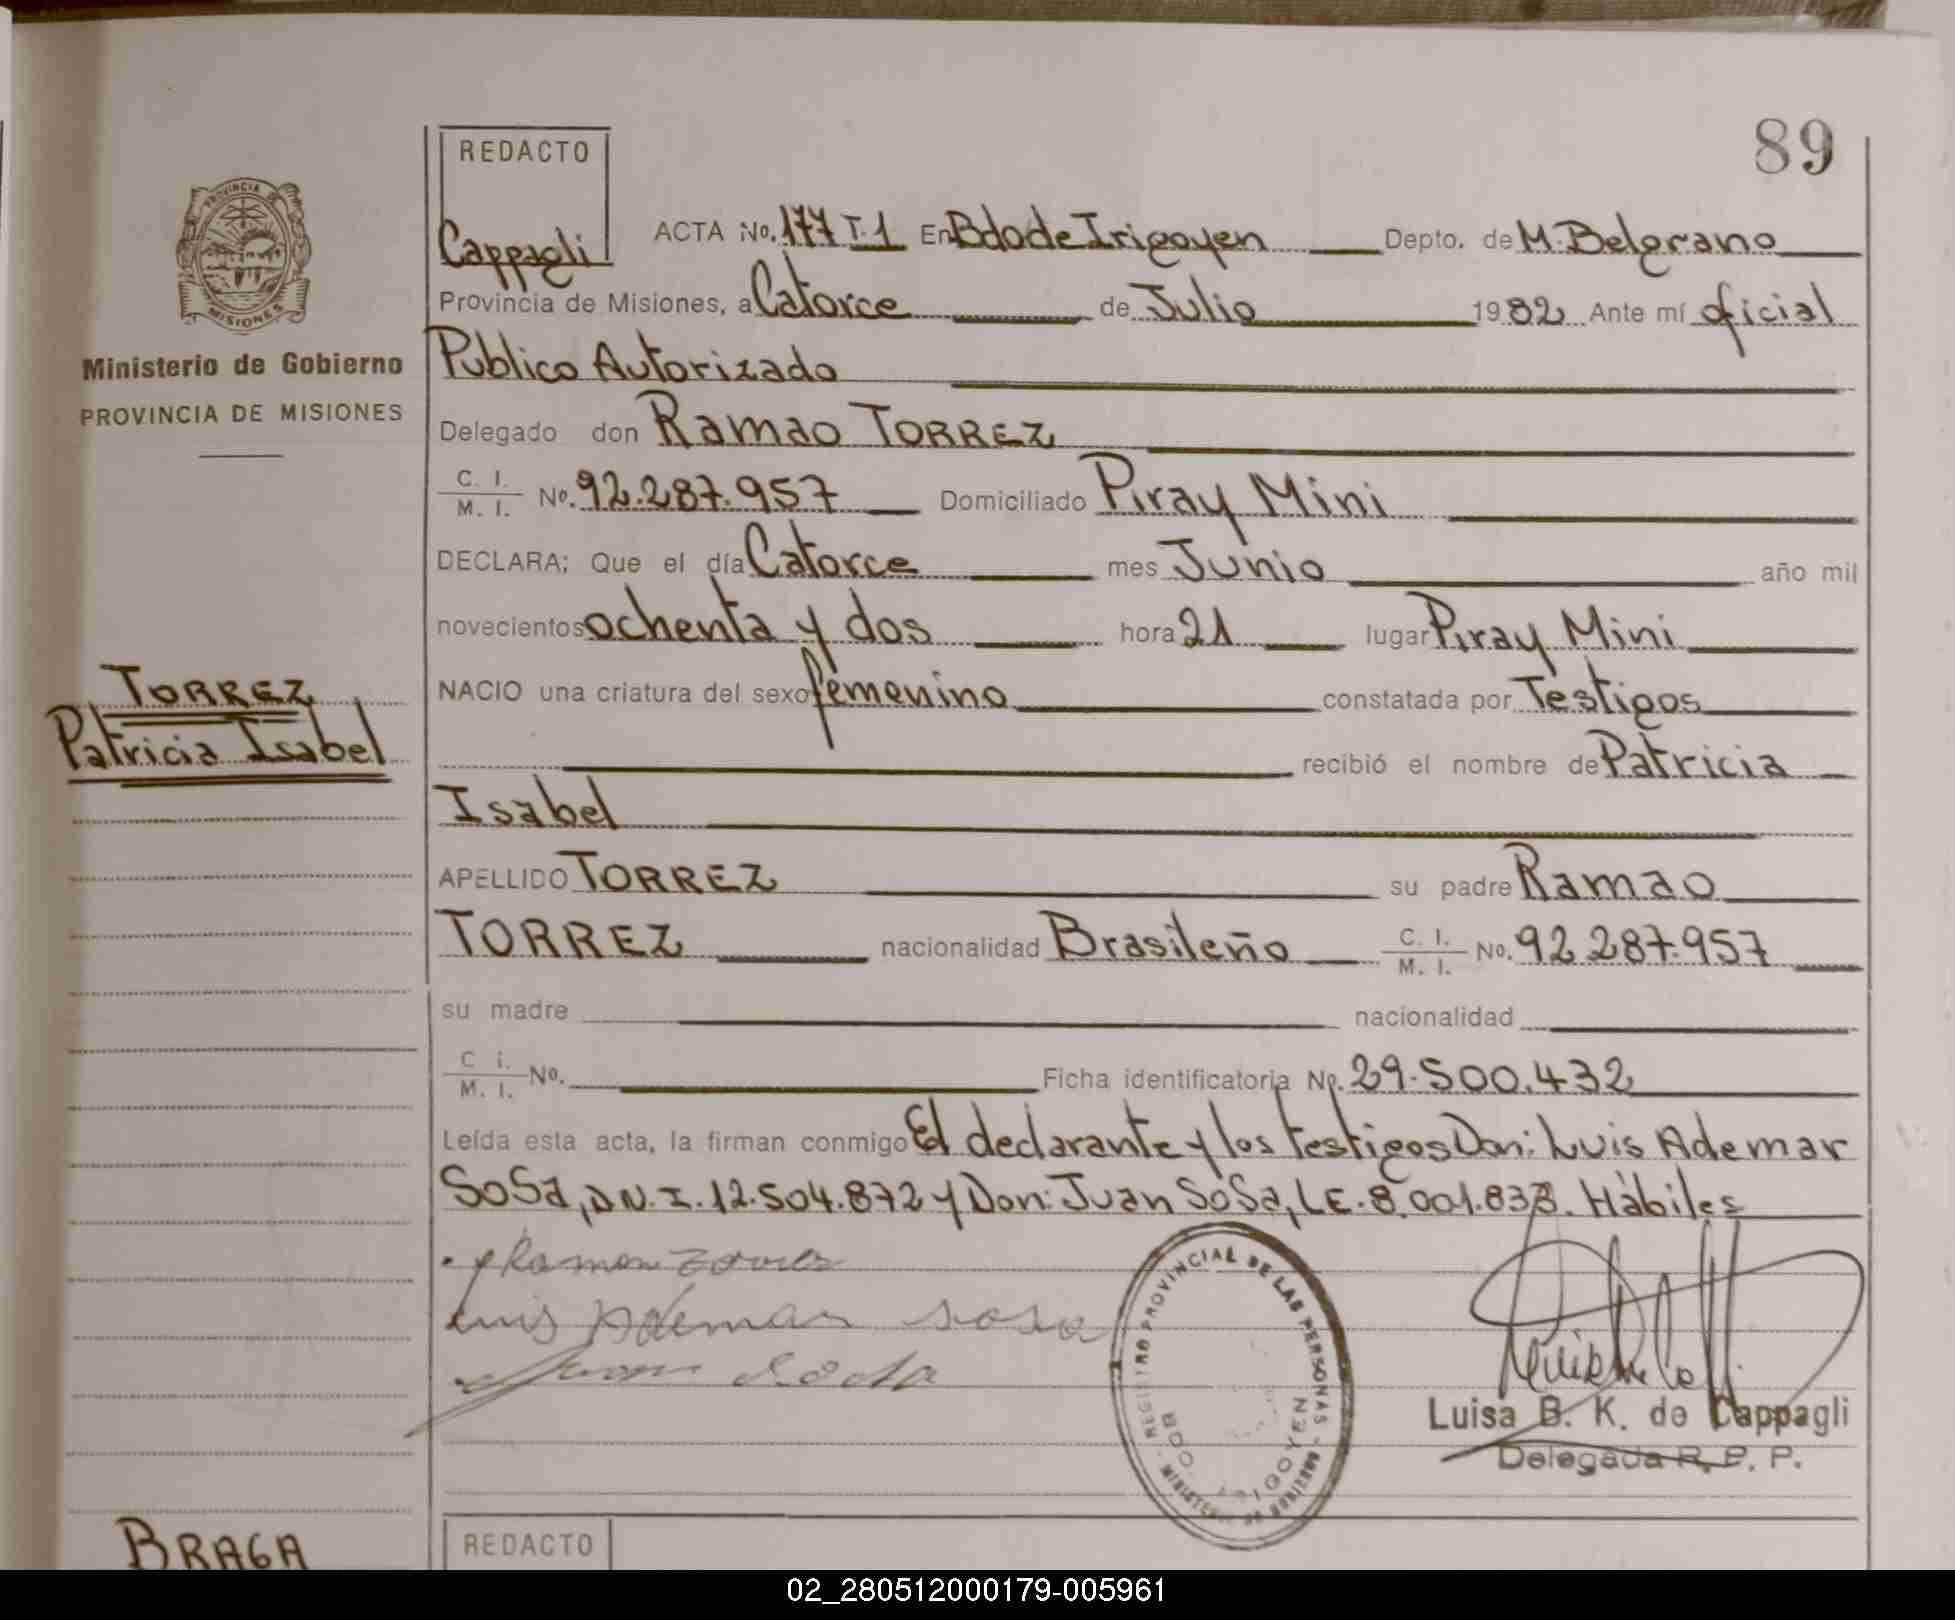 89
REDACTO
Cappagli
ACTA No. 177 T.1 En Bdo de Irigoyen Depto. de M. Belgrano
Provincia de Misiones, a Catorce de Julio 1982 Ante mí oficial
Publico Autorizado
Delegado don Ramao TORREZ
C. I. / M. I. No. 92.287.957 Domiciliado Piray Mini
DECLARA; Que el día Catorce mes Junio año mil
novecientos ochenta y dos hora 21 lugar Piray Mini
NACIO una criatura del sexo femenino constatada por Testigos
recibió el nombre de Patricia
Isabel
APELLIDO TORREZ su padre Ramao
TORREZ nacionalidad Brasileño C. I. / M. I. No. 92.287.957
su madre nacionalidad
C i. / M. I. No. Ficha identificatoria No. 29.500.432
Leída esta acta, la firman conmigo El declarante y los testigos Don: Luis Ademar
Sosa, D.N.I. 12.504.872 y Don: Juan Sosa, L.E. 8.001.833. Hàbiles
Luis Ademar Sosa
Juan Sosa
REGISTRO PROVINCIAL DE LAS PERSONAS
MINISTERIO DE
BDO. IRIGOYEN
Luisa B. K. de Cappagli
Delegada R. P. P.
PROVINCIA DE
MISIONES
Ministerio de Gobierno
PROVINCIA DE MISIONES
TORREZ
Patricia Isabel
BRAGA
REDACTO
02_280512000179-005961